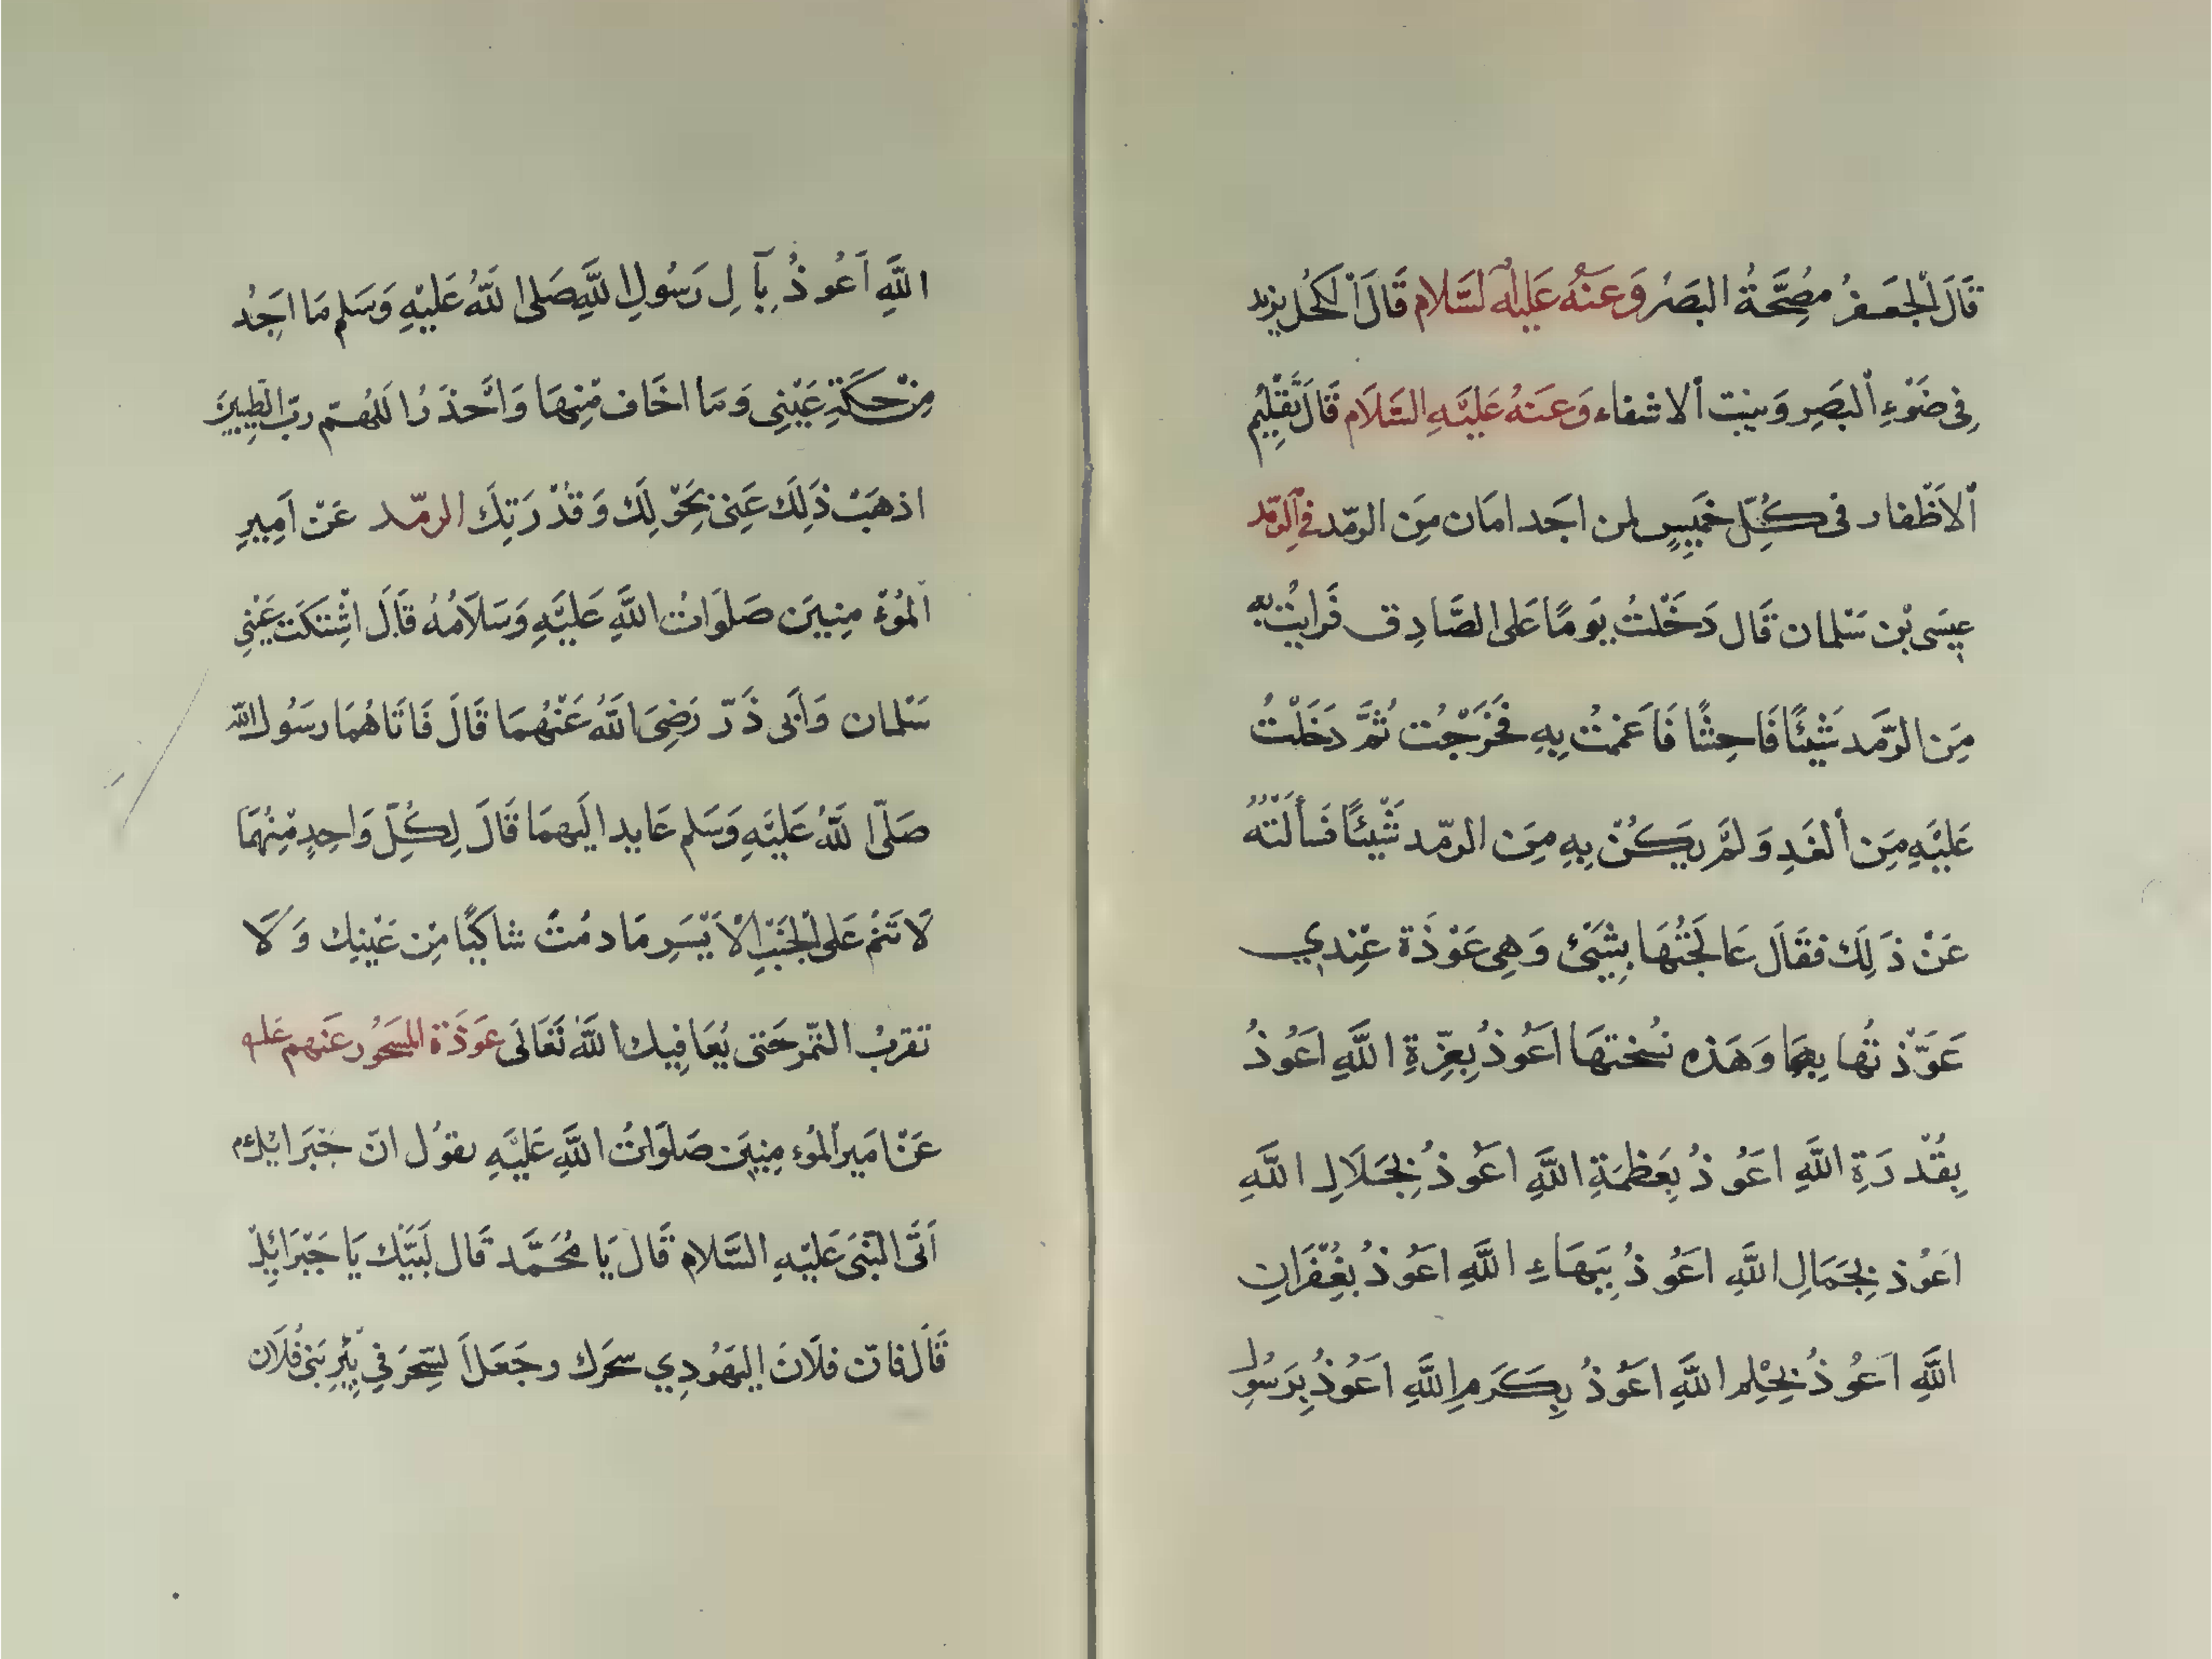 قَالَ الْجَعَفرُ مصِحَّةُ البَصَرُ وَعَنَهُ عَليْهِ لسَّلام قَالَ الْكحُل يزيد
فِى ضَوْءِ الْبَصَرِ وَ ينِبت الاشفاء وَعنَهُ عَليَهِ السَّلَام قَالَ تَقْلِيْمُ
الْاَظْفار فى كُلِّ خَمِيسٍ لمن اجَد امَان مِنَ الرمّد فى الرّمَد
عِيسَى بْن سَلمان قَال دَخَلْتُ يَومًا عَلى الصَّادِق فَرايتُ به
مِنَ الرَّمَد شَيْئًا فَاحِشًا فَاَغممتُ بِهِ فَخَرَجْت ثُمَّ دَخَلْتُ
عَليْهِ مِنَ الْغَدِ وَلَمْ يَكُنْ بِهِ مِنَ الرمّد شَيْئًا فَسألَتْهُ
عَنْ ذَلِكَ فقَالَ عَالَجَتُهَا بِشَيْئ وَهِى عَوْذَة عِنْدي
عَوّذْتُها بِهَا وَهَذه نُسختهَا اَعَوُذُ بِعِزّةِ اللَّهِ اعَوُذُ
بِقُدْرَةِ اللَّهِ اعَوُذُ بِعَظمَةِ اللَّهِ اعَوُذُ بِجَلَالِ اللَّهِ
اعَوُذ بِجَمَالِ اللَّهِ اعَوُذُ بِبَهَاءِ اللَّهِ اعَوُذُ بغُفْرَانِ
اللَّهِ اَعُوذُ بِحِلْمِ اللَّهِ اعَوُذُ بِكَرَمِ اللَّهِ اعَوُذُ بِرَسُولِ
اللَّهِ اَعُوذُ بِآلِ رَسُولِ اللَّهِ صَلى اللَّهُ عَليْهِ وَسَلم مَا اجَدُ
مِنْ حَكَّةِ عَيْنِى وَمَا اخَاف مْنِهَا وَ اَحْذَرُ اللَهُمّ رَبّ الطَيبِينَ
اذهَبْ ذَلِكَ عَنِى بَحَوْلِكَ وَقُدْرَتِكَ الرمّد عَنْ اَمِيرِ
الْمُوءْمِنِينَ صَلوَاتُ اللَّهِ عَليَهِ وَسَلَامُهُ قَالَ اشْتَكَتْ عَيْنِى
سَلمان وَ اَبى ذَرّ رَضِىَ اللَّهُ عَنْهُمَا قَالَ فَاتَاهُمَا رسَوُل اللّه
صَلّى اللَّهُ عَليَهِ وَسَلم عَايدا اليَهمَا قَالَ لِكُلِّ وَاحِدٍ مِنْهُمَا
لَا تَنمْ عَلى الْجَنَبِ الْاَيْسَرِ مَا دمُتَ شاكِيًا مِن عَيْنِك وَلَا
تقربُ التمّر حَتى يُعَافِيك اللَّه تَعَالَى عَوَذَة المسَحُور عَنهم عَليه
عَنْ امَير الْمُوءمِنِيَن صَلوَاتُ اللَّهِ عَليَهِ يقوُل انّ جَبَرائيل
اَتَى النّبَى عَليْهِ السَّلام قَال يَا مُحَمَّد قَال لَبَيَّك يَا جَبْرَايِلْ
قَال فانّ فلَان اليَهُودِي سحَرك وجَعَل السِّحِرَ في بِئْرِ بَنى فُلَان